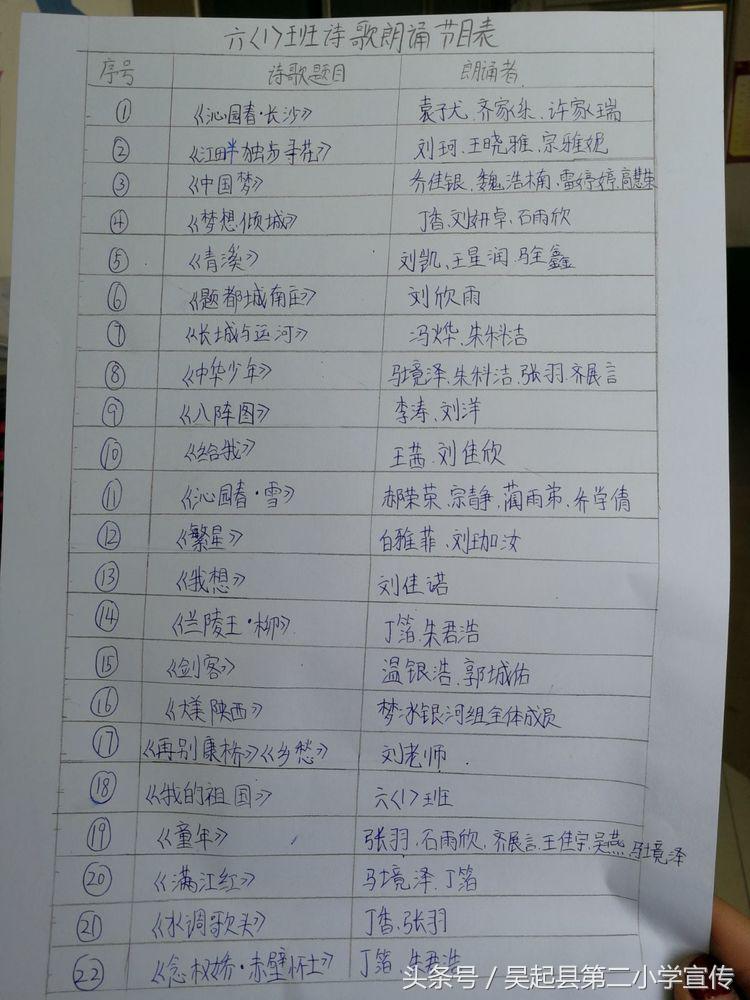 六〈1〉班诗歌朗诵节目表
序号 诗歌题目 朗诵者
① 《沁园春·长沙》 袁子尤.齐家乐.许家瑞
② 《江畔独步寻花》 刘珂.王晓雅.宗雅妮
③ 《中国梦》 乔佳银.魏浩楠.雷婷婷.高慧荣
④ 《梦想倾城》 丁香.刘妍卓.石雨欣
⑤ 《青溪》 刘凯.王星润.马全鑫
⑥ 《题都城南庄》 刘欣雨
⑦ 《长城与运河》 冯烨.朱科洁
⑧ 《中华少年》 马境泽.朱科洁.张羽.齐展言
⑨ 《八阵图》 李涛.刘洋
⑩ 《给我》 王茜.刘佳欣
⑪ 《沁园春·雪》 郝荣荣.宗静.蔺雨芾.乔学倩
⑫ 《繁星》 白雅菲.刘珈汝
⑬ 《我想》 刘佳诺
⑭ 《兰陵王·柳》 丁箔.朱君浩
⑮ 《剑客》 温银浩.郭城佑
⑯ 《大美陕西》 梦冰银河组全体成员
⑰ 《再别康桥》《乡愁》 刘老师
⑱ 《我的祖国》 六〈1〉班
⑲ 《童年》 张羽.石雨欣.齐展言.王佳宇.吴燕.马境泽
⑳ 《满江红》 马境泽.丁箔
㉑ 《水调歌头》 丁香.张羽
㉒ 《念奴娇·赤壁怀古》 丁箔.朱君浩
头条号 / 吴起县第二小学宣传